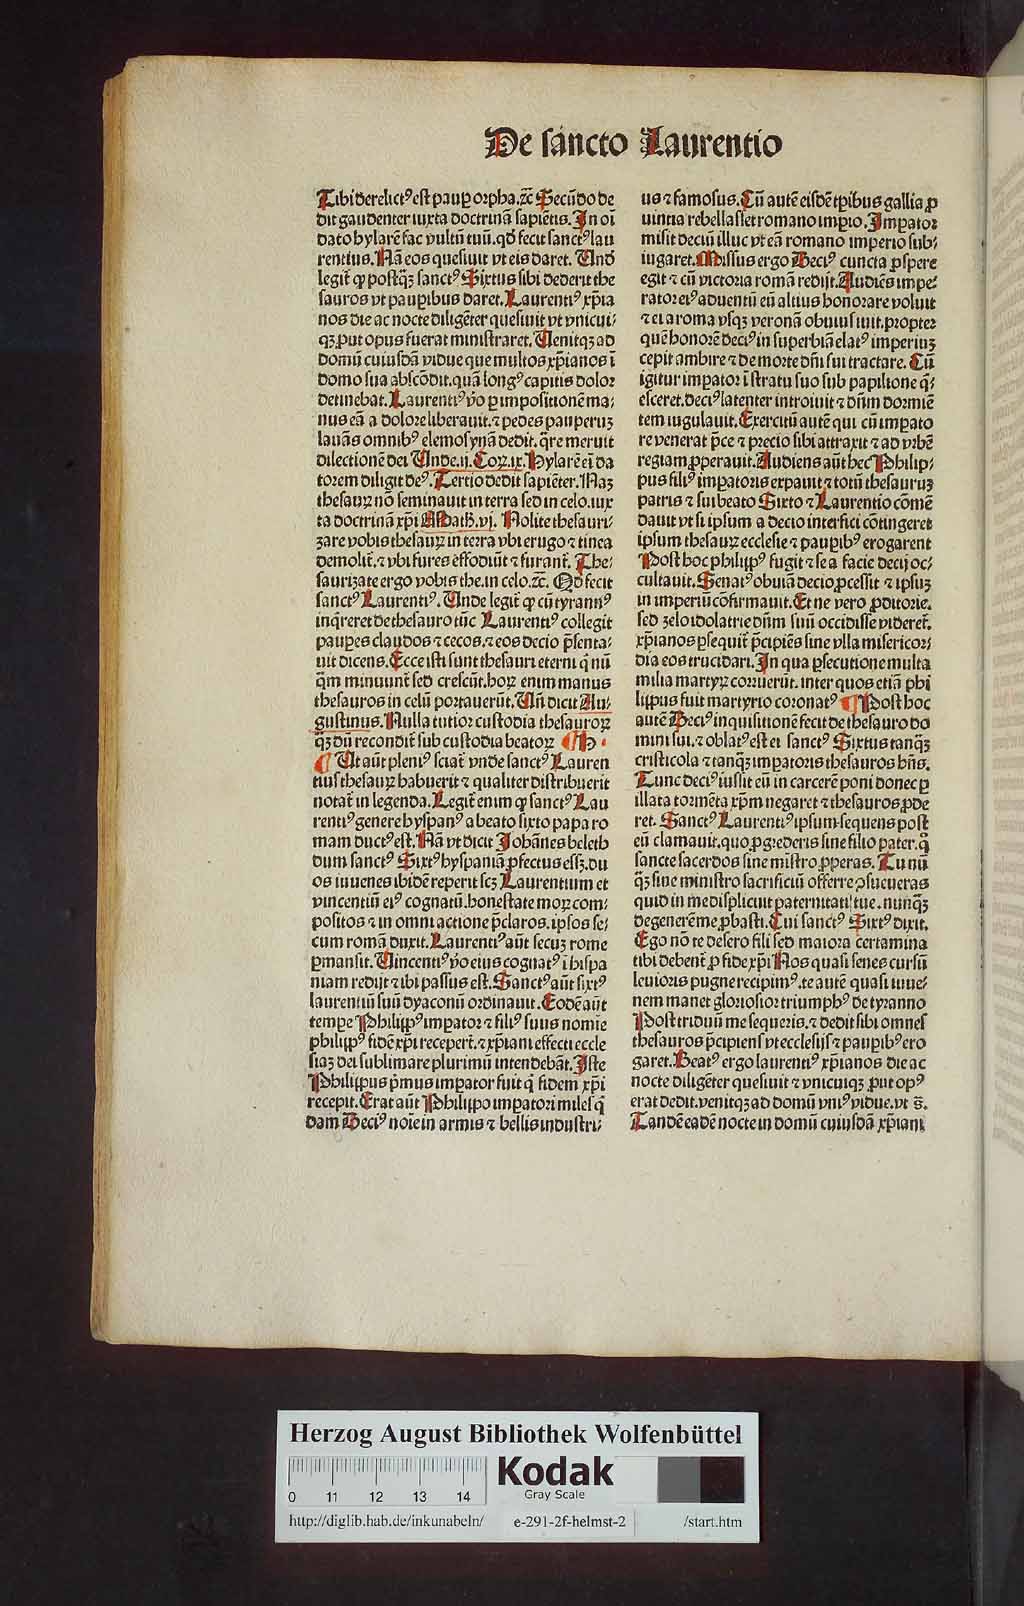 De sancto Laurentio
Tibi derelictꝰ est paup̲ orpha.ꝛc̄ Secūdo de
dit gaudenter iuxta doctrinā sapiētis. In oī
dato hylarē fac vultū tuū. qd̛ fecit sanctꝰ lau
rentius. Nā eos quesiuit vt eis daret. Und̛
legit̛ ꝙ postq̄ꝫ sanctꝰ Sixtus sibi dederit the
sauros vt paup̲ibus daret. Laurentiꝰ xp̄ia
nos die ac nocte diligēter quesiuit vt vnicui⸗
qꝫ ꝓut opus fuerat ministraret. Uenitqꝫ ad
domū cuiusdā vidue que multos xp̄ianos ī
domo sua abscōdit. quā longꝰ capitis dolor
detinebat. Laurentiꝰ v̄o p̲ impositionē ma⸗
nus eā a dolore liberauit. ⁊ pedes pauperuꝫ
lauās omnibꝰ elemosynā dedit. q̄re meruit
dilectionē dei Unde.ij. Coꝝ.ix. Hylarē eī da
torem diligit deꝰ. Tertio dedit sapiēter. Naꝫ
thesauꝝ nō seminauit in terra sed in celo. iux
ta doctrinā xp̄i Math̄.vj. Nolite thesauri⸗
zare vobis thesauꝝ in terra vbi erugo ⁊ tinea
demolit̛. ⁊ vbi fures effodiūt ⁊ furant̛. The⸗
saurizate ergo vobis the. in celo.ꝛc̄. Qd̛ fecit
sanctꝰ Laurentiꝰ. Unde legit̛ ꝙ cū tyrannꝰ
inq̄reret de thesauro tūc Laurentiꝰ collegit
paup̲es claudos ⁊ cecos. ⁊ eos decio p̄senta⸗
uit dicens. Ecce isti sunt thesauri eterni q̄ nū
q̄m minuunt̛ sed crescūt. hoꝝ enim manus
thesauros in celū portauerūt. Un̄ dicit Au⸗
gustinus. Nulla tutior custodia thesauroꝝ
q̄ꝫ dū recondit̛ sub custodia beatoꝝ
Ut aūt pleniꝰ sciat̛ vnde sanctꝰ Lauren
tius thesauꝝ habuerit ⁊ qualiter distribuerit
notat̛ in legenda. Legit̛ enim ꝙ sanctꝰ Lau
rentiꝰ genere hyspanꝰ a beato sixto papa ro
mam ductꝰ est. Nā vt dicit Johānes beleth
dum sanctꝰ Sixtꝰ hyspaniā ꝓfectus essꝫ. du
os iuuenes ibidē reperit scꝫ Laurentium et
vincentiū eiꝰ cognatū. honestate moꝝ com⸗
positos ⁊ in omni actione p̄claros. ipsos se⸗
cum romā duxit. Laurentiꝰ aūt secuꝫ rome
p̲mansit. Uincentiꝰ v̄o eius cognatꝰ ī hispa
niam redijt ⁊ ibi passus est. Sanctꝰ aūt sixtꝰ
laurentiū suū dyaconū ordinauit. Eodē aūt
tempe Philippꝰ impator ⁊ filiꝰ suus nomīe
philippꝰ fidē xp̄i recepert̛. ⁊ xp̄iani effecti eccle
siaꝫ dei sublimare plurimū intendebāt. Iste
Philippus p̄mus impator fuit q̄ fidem xp̄i
recepit. Erat aūt Philippo impatori miles q̄
dam Deciꝰ noīe in armis ⁊ bellis industri⸗
us ⁊ famosus. Cū autē eisdē tp̄ibus gallia ꝓ
uintia rebellasset romano imp̲io. Impator
misit deciū illuc vt eā romano imperio sub⸗
iugaret. Missus ergo Deciꝰ cuncta ꝓspere
egit ⁊ cū victoria romā redijt. Audiēs impe⸗
rator eiꝰ aduentū eū altius honorare voluit
⁊ ei a roma vsqꝫ veronā obuius iuit. propter
quē honorē deciꝰ in superbiā elatꝰ imperiuꝫ
cepit ambire ⁊ de morte dn̄i sui tractare. Cū
igitur impator ī stratu suo sub papilione q̄⸗
esceret. deciꝰ latenter introiuit ⁊ dn̄m dormiē
tem iugulauit. Exercitū autē qui cū impato
re venerat p̄ce ⁊ precio sibi attraxit ⁊ ad vrbē
regiam ꝓperauit. Audiens aūt hec Philip⸗
pus filiꝰ imp̲atoris expauit ⁊ totū thesauruꝫ
patris ⁊ sui beato Sixto ⁊ Laurentio cōmē
dauit vt si ipsum a decio interfici cōtingeret
ipsum thesauꝝ ecclesie ⁊ paup̲ibꝰ erogarent
Post hoc philippꝰ fugit ⁊ se a facie decij oc⸗
cultauit. Senatꝰ obuiā decio ꝓcessit ⁊ ipsuꝫ
in imperiū cōfirmauit. Et ne vero ꝓditorie.
sed zelo idolatrie dn̄m suū occidisse videret̛.
xp̄ianos p̲sequit̛ p̄cipiēs sine vlla misericor⸗
dia eos trucidari. In qua p̲secutione multa
milia martyꝝ corruerūt. inter quos etiā phi
lippus fuit martyrio coronatꝰ Post hoc
autē Deciꝰ inquisitionē fecit de thesauro do
mini sui. ⁊ oblatꝰ est ei sanctꝰ Sixtus tanq̄ꝫ
cristicola ⁊ tanq̄ꝫ impatoris thesauros hn̄s.
Tunc deciꝰ iussit eū in carcerē poni donec p̲
illata tormēta xp̄m negaret ⁊ thesauros ꝓde
ret. Sanctꝰ Laurentiꝰ ipsum sequens post
eū clamauit. quo ꝓgrederis sine filio pater. q̄
sancte sacerdos sine mīstro ꝓperas. Tu nū
q̄ꝫ sine ministro sacrificiū offerre ꝯsueueras
quid in me displicuit paternitati tue. nunq̄ꝫ
degenerē me ꝓbasti. Cui sanctꝰ Sixtꝰ dixit.
Ego nō te desero fili sed maiora certamina
tibi debent̛ ꝓ fide xp̄i Nos quasi senes cursū
leuioris pugne recipimꝰ. te autē quasi iuue⸗
nem manet gloriosior triumphꝰ de tyranno
Post triduū me sequeris. ⁊ dedit sibi omnes
thesauros p̄cipiens vt ecclesijs ⁊ paup̲ibꝰ ero
garet. Beatꝰ ergo laurentiꝰ xp̄ianos die ac
nocte diligēter quesiuit ⁊ vnicuiqꝫ ꝓut opꝰ
erat dedit. venitqꝫ ad domū vniꝰ vidue. vt s̄.
Tandē eadē nocte in domū cuiusdā xp̄iani
Herzog August Bibliothek Wolfenbüttel
Kodak
Gray Scale
0 11 12 13 14
http://diglib.hab.de/inkunabeln/ e-291-2f-helmst-2 /start.htm